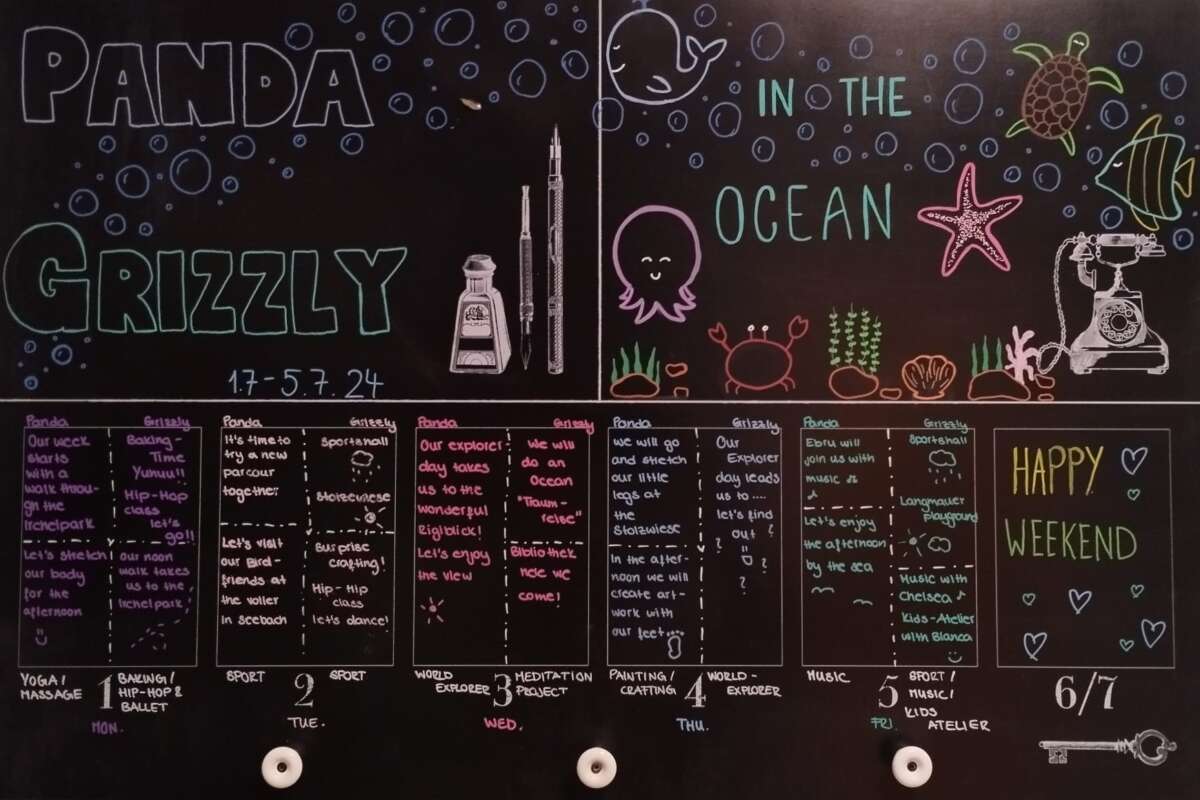 PANDA
GRIZZLY
1.7-5.7.24
IN THE
OCEAN
Panda
Our week
starts
with a
walk throu-
gh the
Irchelpark
Let's stretch
our body
for the
afternoon
Grizzly
Baking-
Time
Yuhuu!!
Hip-Hop
class
let's
go!!
our noon
walk takes
us to the
Irchelpark!
YOGA/
MASSAGE
1
BAKING/
HIP-HOP &
BALLET
MON.
Panda
It's time to
try a new
parcour
together
Let's visit
our Bird-
friends at
the voller
in Seebach
Grizzly
Sportshall
Stolzewiese
Surprise
crafting!
Hip-Hip
class
let's dance!
SPORT
2
SPORT
TUE.
Panda
Our explorer
day takes
us to the
wonderful
Rigiblick!
Let's enjoy
the view
Grizzly
we will
do an
Ocean
"Traum-
reise"
Bibliothek
here we
come!
WORLD
EXPLORER
3
MEDITATION
PROJECT
WED.
Panda
we will go
and stretch
our little
legs at
the
Stolzwiese
In the after-
noon we will
create art-
work with
our feet
Grizzly
Our
Explorer
day leads
us to ....
let's find
out
? ?
?
PAINTING/
CRAFTING
4
WORLD-
EXPLORER
THU.
Panda
Ebru will
join us with
music ♫
♪
Let's enjoy
the afternoon
by the sea
Grizzly
Sportshall
Langmauer
playground
Music with
Chelsea ♪
Kids-Atelier
with Bianca
MUSIC
5
SPORT/
MUSIC/
KIDS
ATELIER
FRI.
HAPPY
WEEKEND
6/7